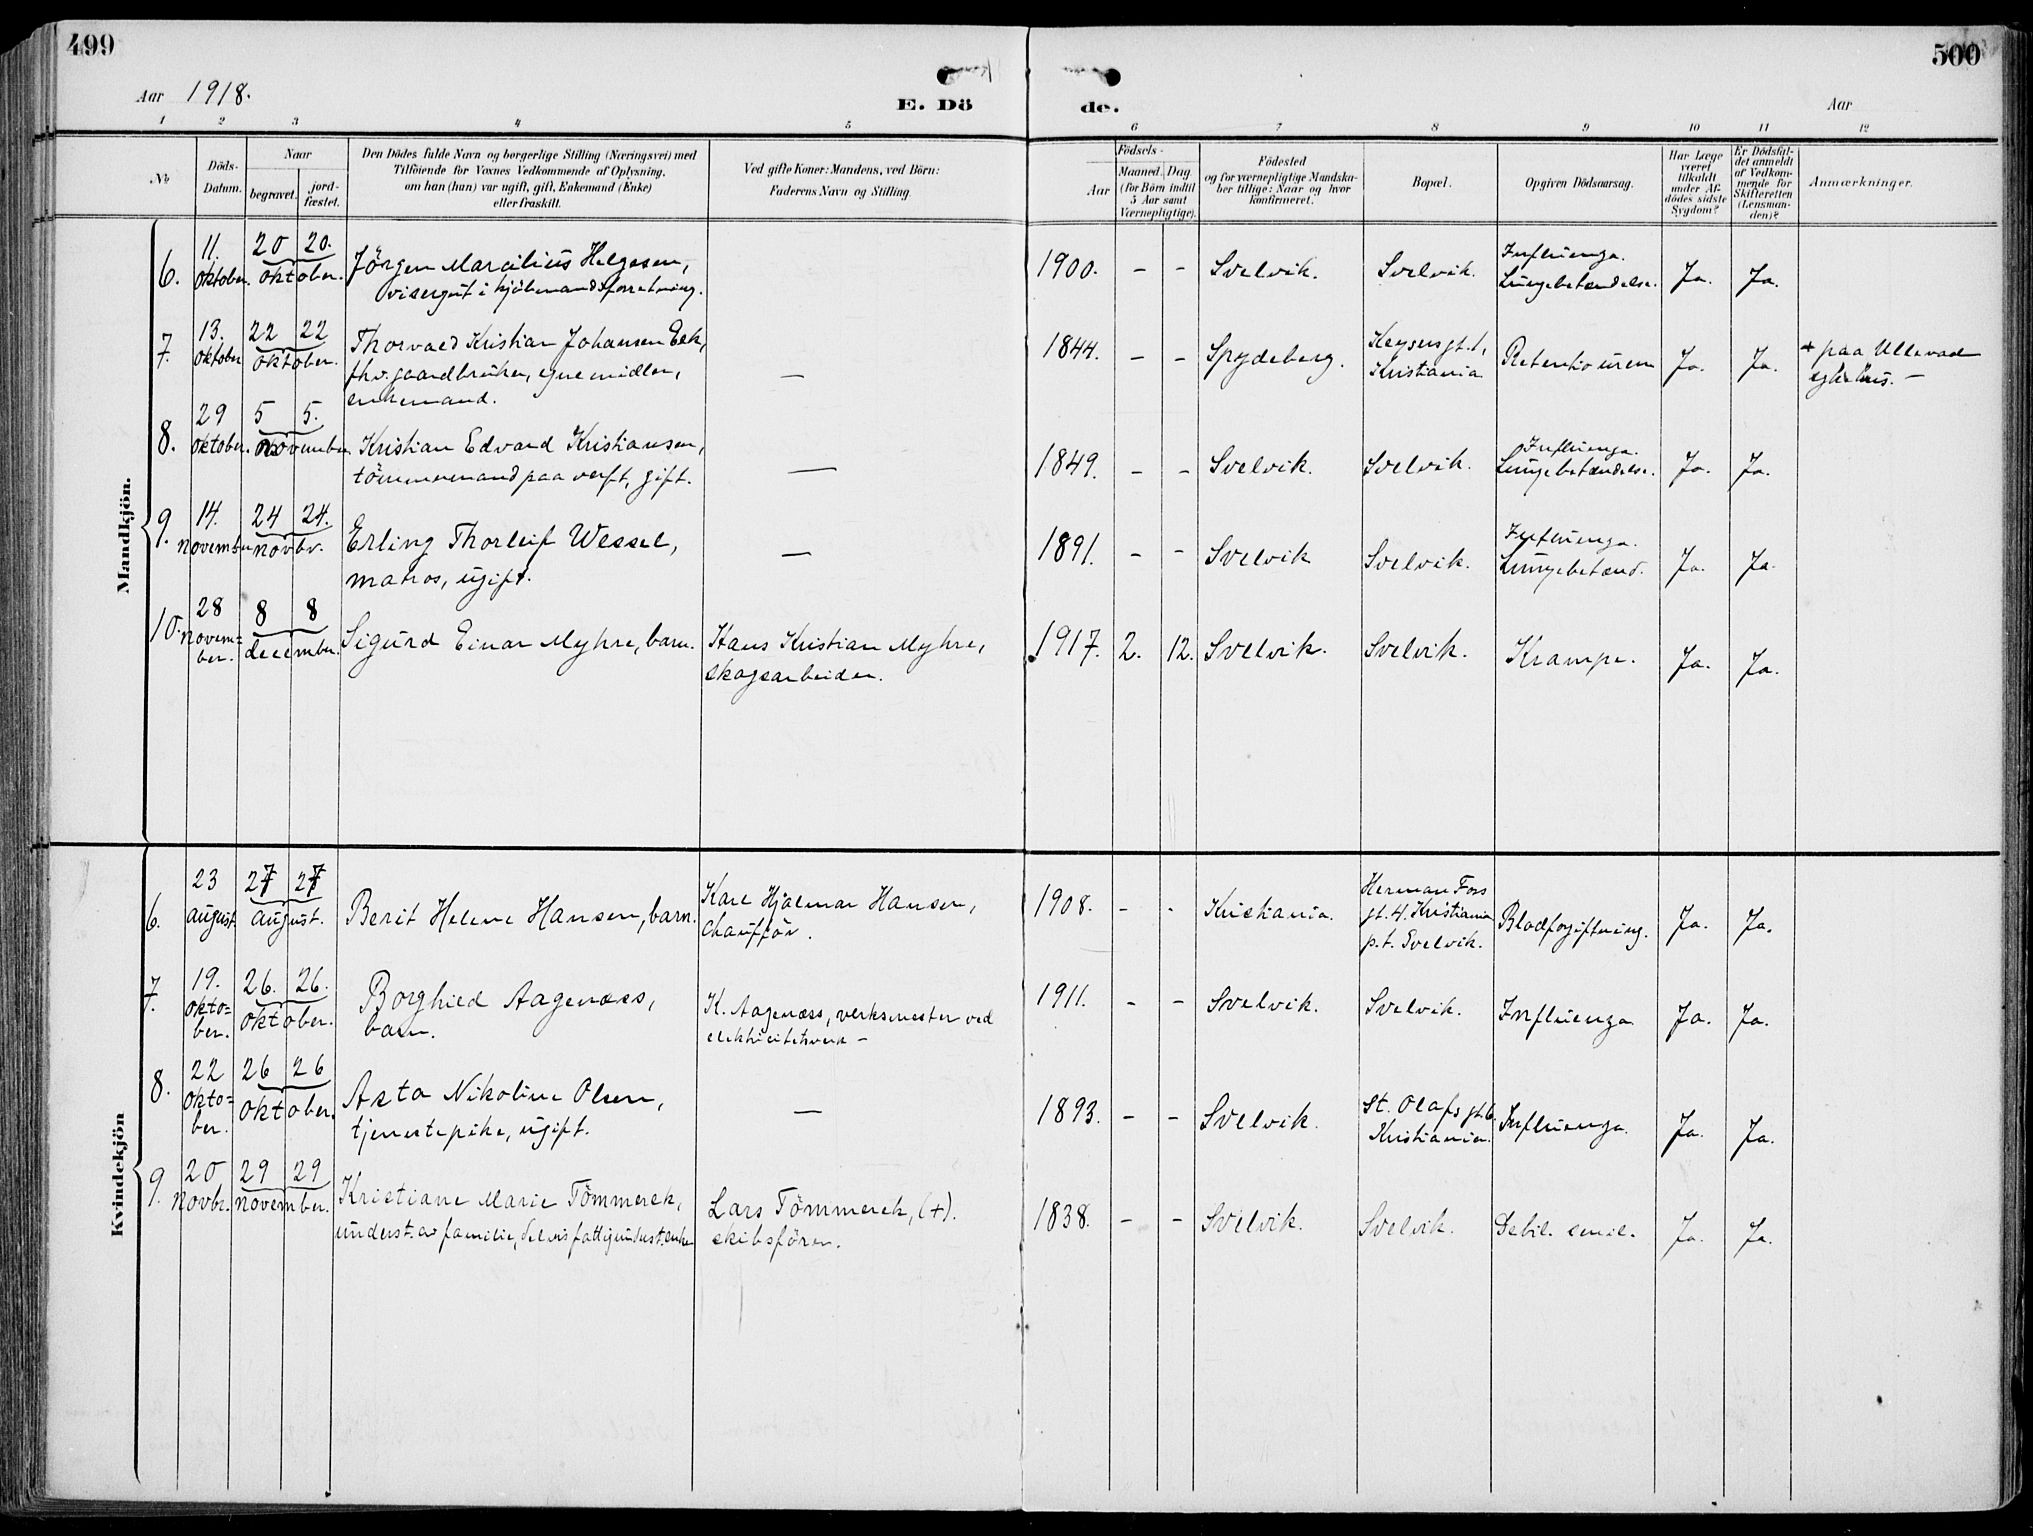 499
500
Aar 1918.
E. Dö
de.
Aar
1 2 3 4 5 6 7 8 9 10 11 12
No
Döds-Datum.
Naar
begravet.
jord-fæstet.
Den Dödes fulde Navn og borgerlige Stilling (Næringsvei) med
Tilföiende for Voxnes Vedkommende af Oplysning,
om han (hun) var ugift, gift, Enkemand (Enke)
eller fraskilt.
Ved gifte Koner: Mandens, ved Börn:
Faderens Navn og Stilling.
Födsels-
Aar
Maaned. Dag.
(for Börn indtil
5 Aar samt
Værnepligtige).
Födested
og for værnepligtige Mandska-
ber tillige: Naar og hvor
konfirmeret.
Bopæl.
Opgiven Dödsaarsag.
Har Læge
været
tilkaldt
under Af-
dödes sidste
Sygdom?
Er Dödsfal-
det anmeldt
af Vedkom-
mende for
Skifteretten
(Lensman-
den)?
Anmærkninger.
Mandkjön.
6. 11. oktober. 20 20. oktober. Jörgen Marcilius Helgesen,
visergut i kjöbmandsforretning.
1900. - - Svelvik. Svelvik. Influenza.
Lungebetændelse. Ja. Ja.
7. 13. oktober 22 22 oktober. Thorvald Kristian Johansen Eek,
fhv. gaardbruker, egne midler,
enkemand.
—
1844. - - Spydeberg. Keysersgt. 1,
Kristiania Retentio urin Ja. Ja. + paa Ullevaal
sykehus. -
8. 29 oktober. 5 5. november. Kristian Edvard Kristiansen,
tömmermand paa verft, gift.
—
1849. - - Svelvik. Svelvik. Influenza.
Lungebetændelse. Ja. Ja.
9. 14. november 24 24. novbr. Erling Thorleif Wessel,
matros, ugift.
—
1891. - - Svelvik Svelvik. Influenza.
Lungebetænd. Ja. Ja.
10. 28 novem=
ber. 8 8 december. Sigurd Einar Myhre, barn. Hans Kristian Myhre,
skogsarbeider.
1917. 2. 12. Svelvik. Svelvik. Krampe. Ja. Ja.
Kvindekjön
6. 23 august. 27 27 august. Berit Helene Hansen, barn. Kare Hjalmar Hansen,
Chaufför.
1908. - - Kristiania. Herman Foss
gt. 4. Kristiania
p.t. Svelvik. Blodforgiftning. Ja. Ja.
7. 19. okto=
ber. 26. 26. oktober. Borghild Aagenæss,
barn.
K. Aagenæss, verksmester ved
elektricitetsverk -
1911. - - Svelvik. Svelvik. Influenza Ja. Ja.
8. 22 okto=
ber. 26 26 oktober. Asta Nikoline Olsen,
tjenestepike, ugift.
—
1893. - - Svelvik. St. Olafs gt. 6
Kristiania. Influenza. Ja. Ja.
9. 20 novbr. 29 29 november. Kristiane Marie Tömmerek,
underst. av familie, delvis fattigunderst. enke
Lars Tömmerek, (+).
skibsförer.
1838. - - Svelvik. Svelvik. Debil. senil. Ja. Ja.